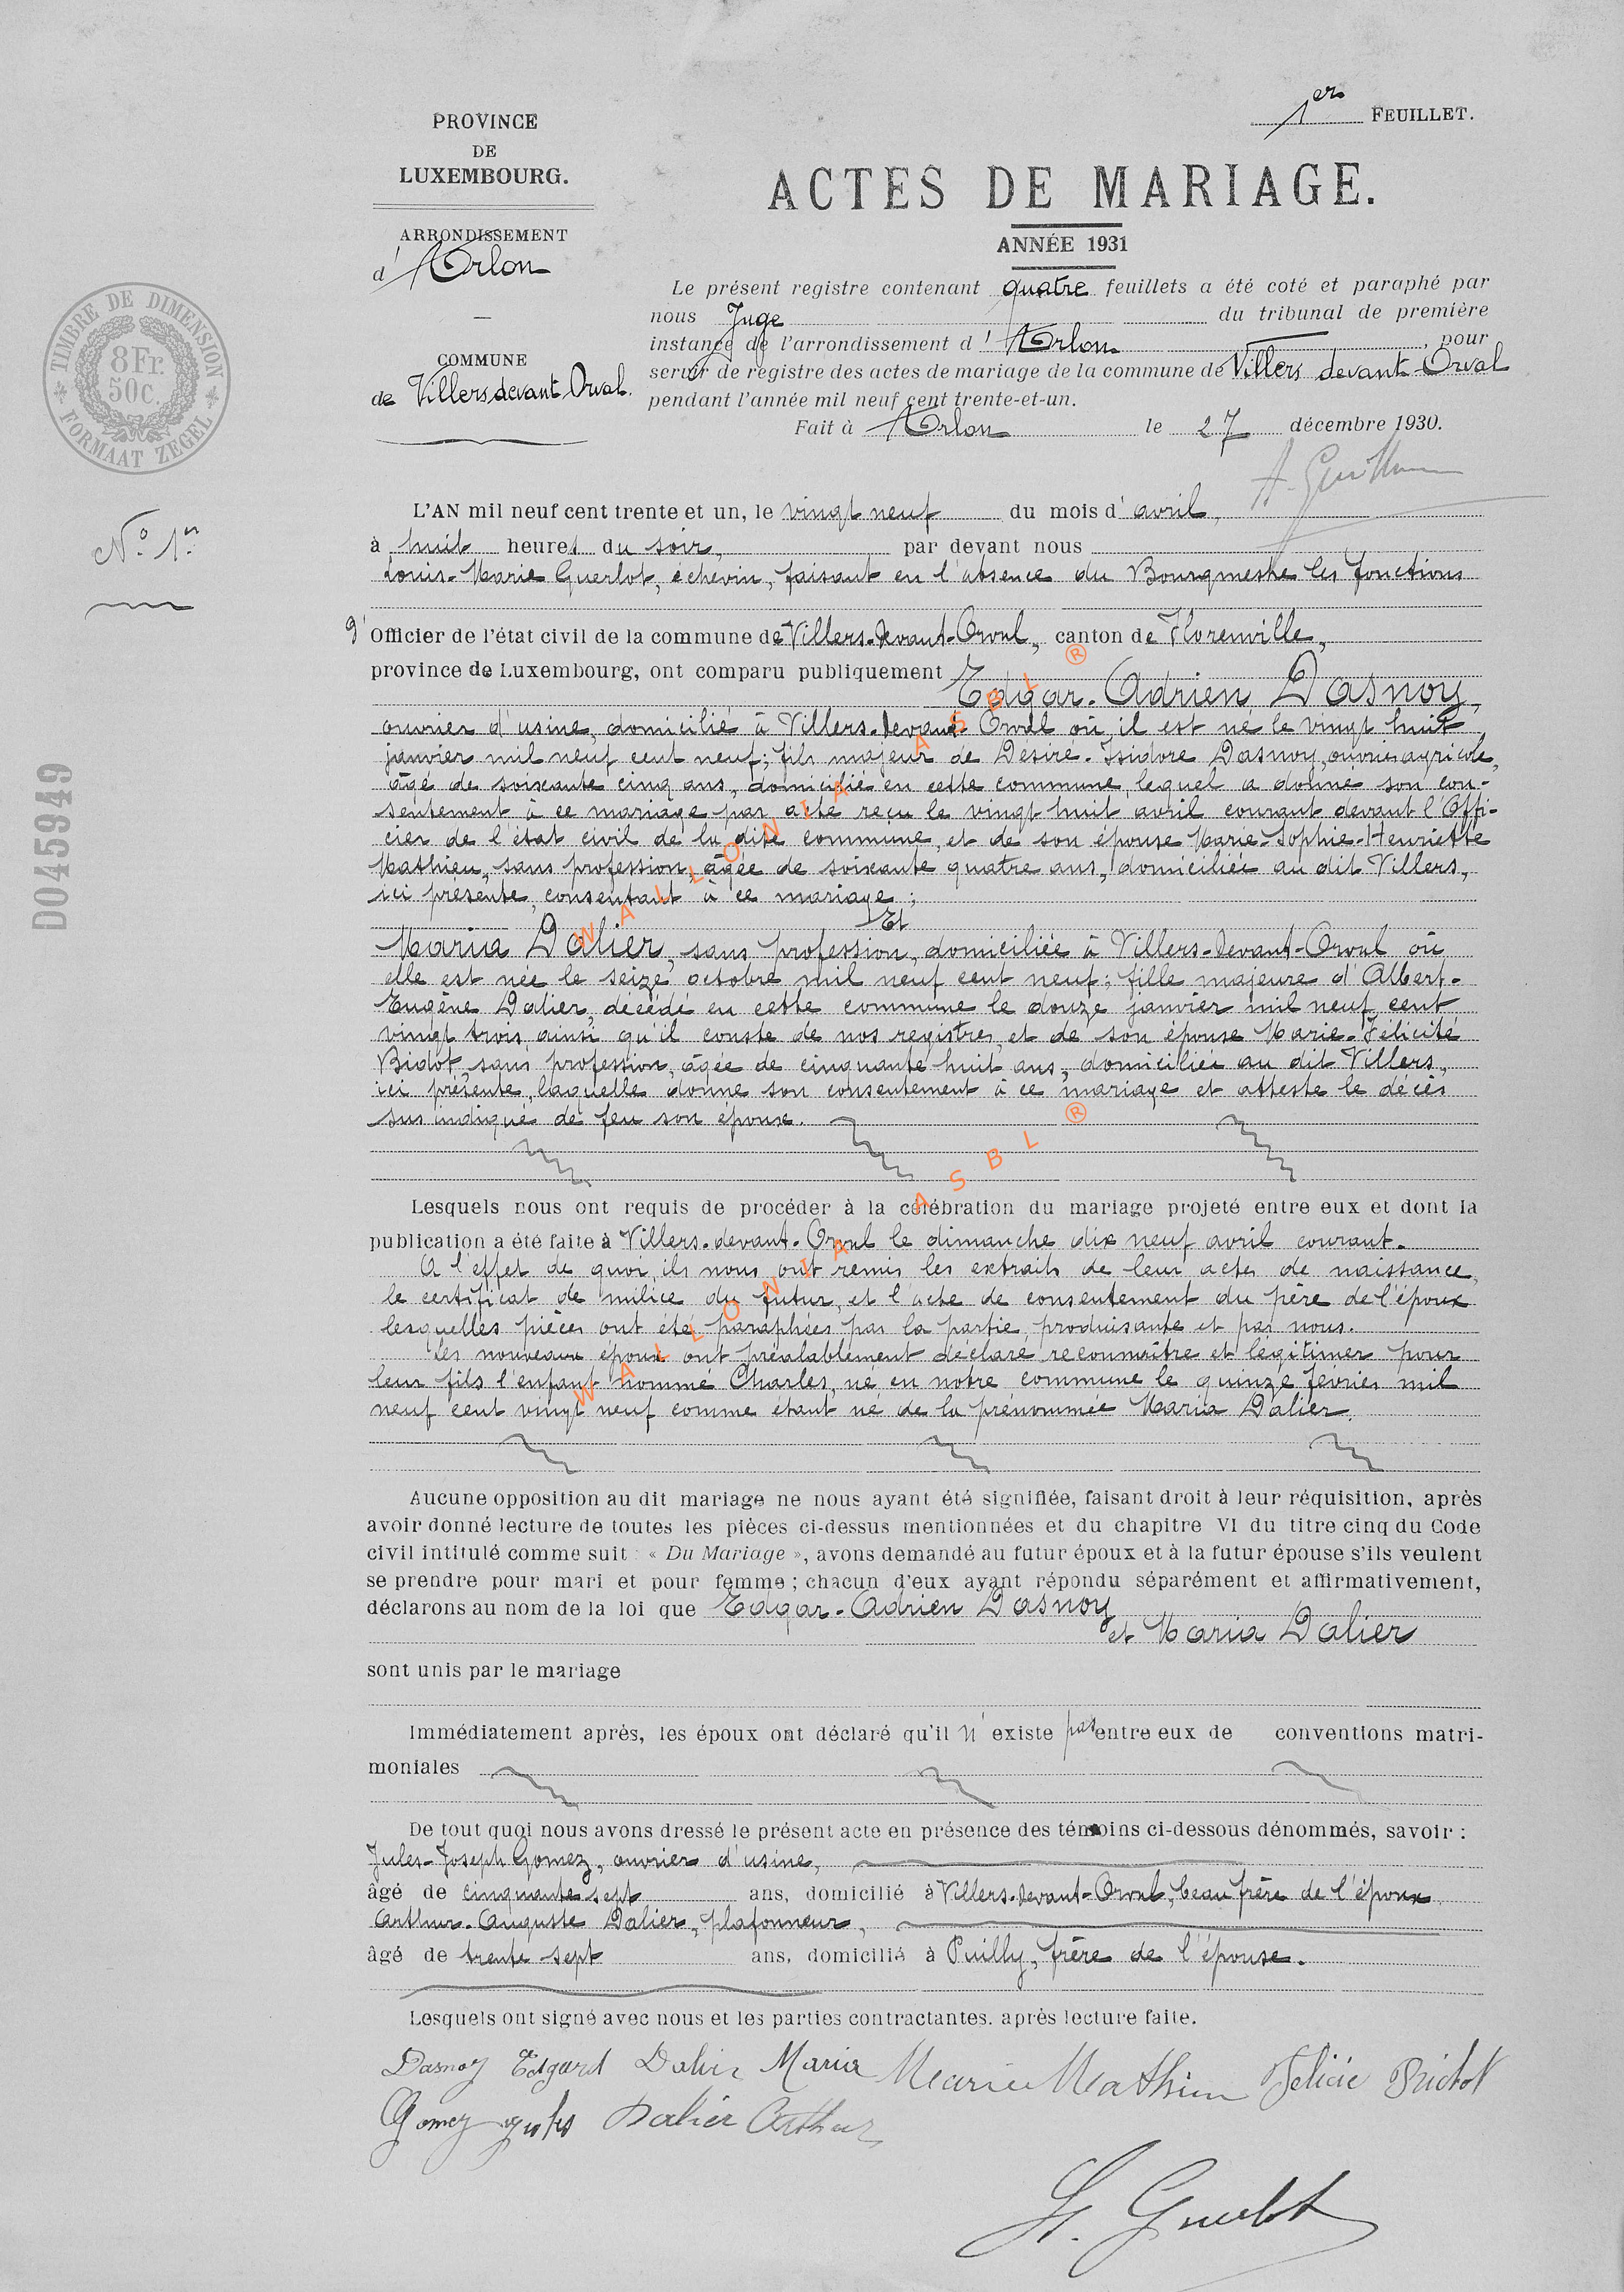 1er FEUILLET.
PROVINCE
DE
LUXEMBOURG.
ARRONDISSEMENT
d'Arlon
COMMUNE
de Villers devant Orval.
TIMBRE DE DIMENSION
8 Fr.
50 C.
FORMAAT ZEGEL
D045949
ACTES DE MARIAGE.
ANNÉE 1931
Le présent registre contenant quatre feuillets a été coté et paraphé par
nous Juge du tribunal de première
instance de l'arrondissement d'Arlon, pour
servir de registre des actes de mariage de la commune de Villers devant-Orval
pendant l'année mil neuf cent trente-et-un.
Fait à Arlon le 27 décembre 1930.
N° 1er
L'AN mil neuf cent trente et un, le vingt neuf du mois d'avril,
à huit heures du soir, par devant nous
Louis-Marie Guerlot, échevin, faisant en l'absence du Bourgmestre les fonctions
d'Officier de l'état civil de la commune de Villers-devant-Orval, canton de Florenville,
province de Luxembourg, ont comparu publiquement
Edgar-Adrien Dasnoy,
ouvrier d'usine, domicilié à Villers-devant-Orval où il est né le vingt huit
janvier mil neuf cent neuf; fils majeur de Désiré-Isidore Dasnoy, ouvrier agricole,
âgé de soixante cinq ans, domicilié en cette commune, lequel a donné son con-
sentement à ce mariage par acte reçu le vingt huit avril courant devant l'Offi-
cier de l'état civil de la dite commune, et de son épouse Marie-Sophie-Henriette
Mathieu, sans profession, âgée de soixante quatre ans, domiciliée au dit Villers,
ici présente, consentant à ce mariage;
Et
Maria Dalier, sans profession, domiciliée à Villers-devant-Orval où
elle est née le seize octobre mil neuf cent neuf; fille majeure d'Albert-
Eugène Dalier, décédé en cette commune le douze janvier mil neuf cent
vingt trois ainsi qu'il conste de nos registres, et de son épouse Marie-Félicité
Bidot, sans profession, âgée de cinquante huit ans, domiciliée au dit Villers,
ici présente, laquelle donne son consentement à ce mariage et atteste le décès
sus indiqué de feu son époux.
Lesquels nous ont requis de procéder à la célébration du mariage projeté entre eux et dont la
publication a été faite à Villers-devant-Orval le dimanche dix neuf avril courant.
A l'effet de quoi, ils nous ont remis les extraits de leur actes de naissance,
le certificat de milice du futur, et l'acte de consentement du père de l'époux
lesquelles pièces ont été paraphées par la partie produisante et par nous.
Les nouveaux époux ont préalablement déclaré reconnaître et légitimer pour
leur fils l'enfant nommé Charles, né en notre commune le quinze février mil
neuf cent vingt neuf comme étant né de la prénommée Maria Dalier.
Aucune opposition au dit mariage ne nous ayant été signifiée, faisant droit à leur réquisition, après
avoir donné lecture de toutes les pièces ci-dessus mentionnées et du chapitre VI du titre cinq du Code
civil intitulé comme suit : « Du Mariage », avons demandé au futur époux et à la futur épouse s'ils veulent
se prendre pour mari et pour femme ; chacun d'eux ayant répondu séparément et affirmativement,
déclarons au nom de la loi que Edgar-Adrien Dasnoy
et Maria Dalier
sont unis par le mariage
Immédiatement après, les époux ont déclaré qu'il n'existe pas entre eux de conventions matri-
moniales
De tout quoi nous avons dressé le présent acte en présence des témoins ci-dessous dénommés, savoir :
Jules-Joseph Gomez, ouvrier d'usine,
âgé de cinquante sept ans, domicilié à Villers-devant-Orval, beau frère de l'époux
Arthur-Auguste Dalier, plafonneur,
âgé de trente sept ans, domicilié à Puilly, frère de l'épouse.
Lesquels ont signé avec nous et les parties contractantes. après lecture faite.
Dasnoy Edgard Dalier Maria Marie Mathieu Félicie Bidot
Gomez Jules Dalier Arthur
WALLONIA ASBL ®
WALLONIA ASBL ®